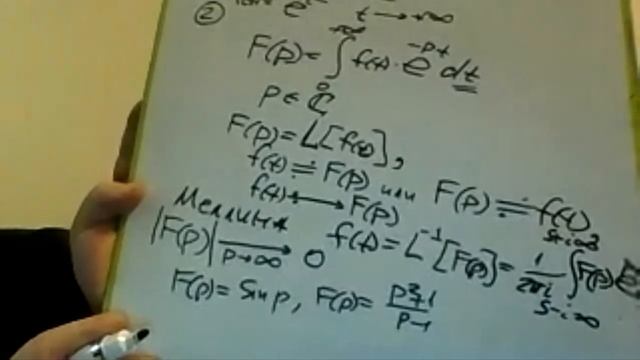 ② e t → +∞
F(p) = ∫₀^{+∞} f(t) · e^{-pt} dt
p ∈ ℂ
F(p) = L[f(t)],
f(t) ≑ F(p) или F(p) ≓ f(t)
f(t) ⟷ F(p)
Меллина
|F(p)| ⟶_{p→∞} 0 f(t) = L⁻¹[F(p)] = 1/(2πi) ∫_{s-i∞}^{s+i∞} F(p) e
F(p) = sin p, F(p) = (p²+1)/(p-1)